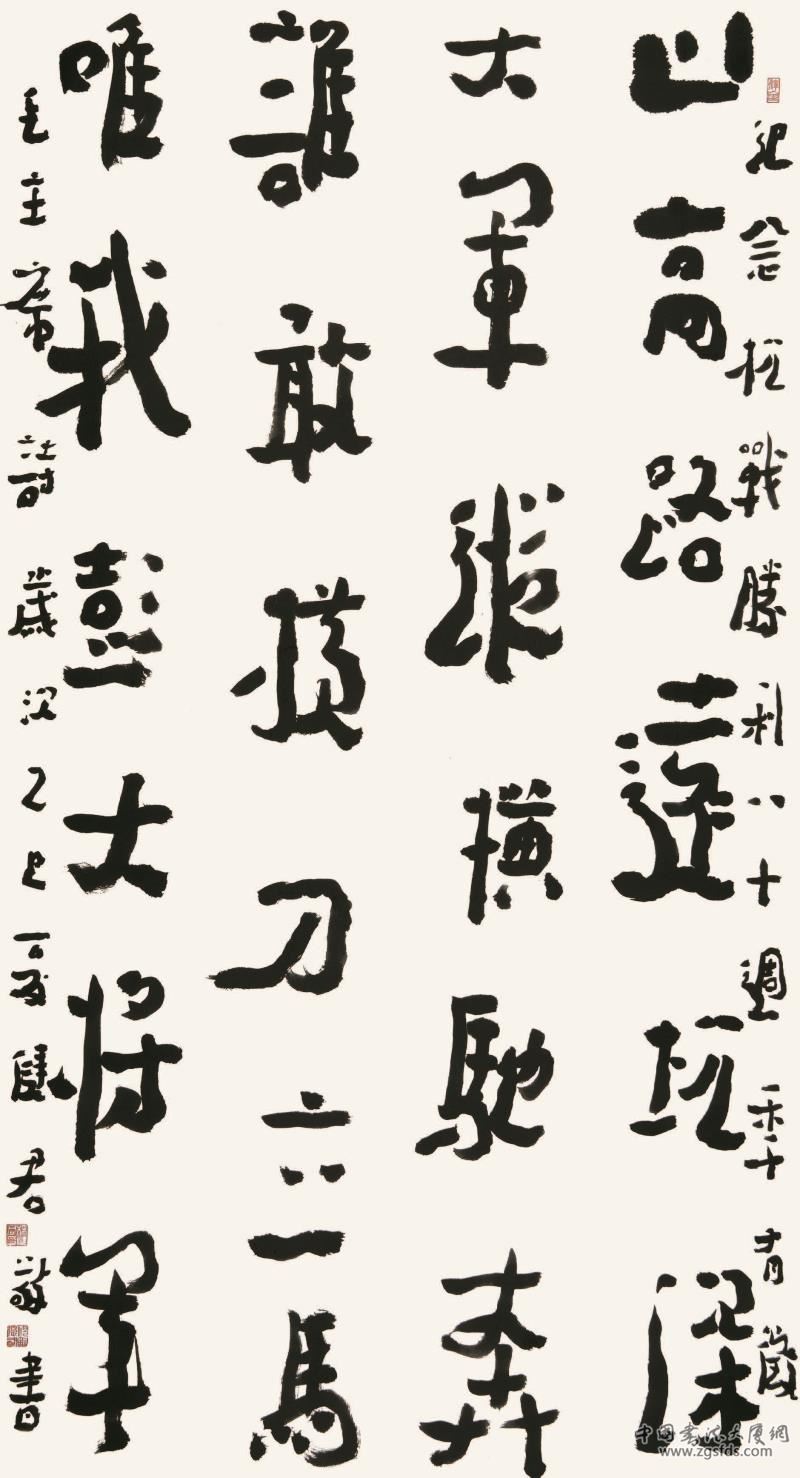 紀念抗戰勝利八十週年
山高路遠坑深
大軍縱橫馳奔
誰敢橫刀立馬
唯我彭大將軍
毛主席詩歲次乙巳夏君敬書
中国書法大厦網
www.zgsfds.com